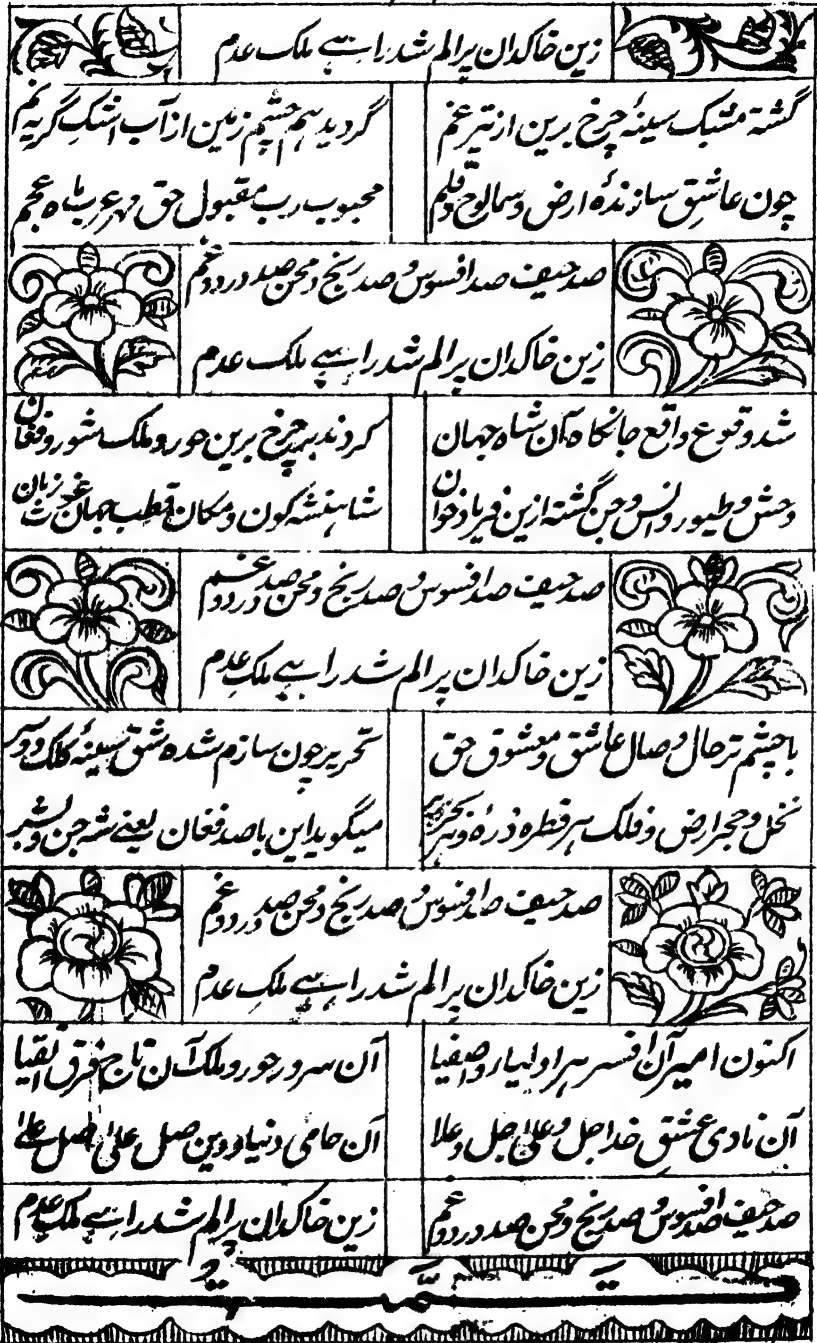 زین خاکدان پر الم شد راہے ملک عدم
گشتہ مشبک سینۂ چرخ برین از تیر غم
گردید ہم چشم زمین از آب اشک گریہ نم
چون عاشق سازندۂ ارض و سما لوح و قلم
محبوب رب مقبول حق مہر عرب ماہ عجم
صد حیف صد افسوس و صد رنج و محن صد درد و غم
زین خاکدان پر الم شد راہے ملک عدم
شد وقوع واقع جانکاہ آن شاہ جہان
کردند بہ چرخ برین حور و ملک شور و فغان
وحش و طیور و انس و جن گشتہ ازین فریاد خوان
شاہنشہ کون و مکان قطب جہان غوث زمان
صد حیف صد افسوس و صد رنج و محن صد درد و غم
زین خاکدان پر الم شد راہے ملک عدم
با چشم تر حال وصال عاشق و معشوق حق
تحریر چون سازم شدہ شق سینۂ کلک و
نخل و حجر ارض و فلک ہر قطرہ ذرہ
میگوید این با صد فغان یعنے شہ جن و بشر
صد حیف صد افسوس و صد رنج و محن صد درد و غم
زین خاکدان پر الم شد راہے ملک عدم
اکنون امیر آن افسر ہر اولیا و اصفیا
آن سرور حور و ملک آن تاج فرق اتقیا
آن ہادی عشق خدا جل وعلیٰ جل وعلا
آن حامی دنیا و دین صل علیٰ صل علا
صد حیف صد افسوس و صد رنج و محن صد درد و غم
زین خاکدان پر الم شد راہے ملک عدم